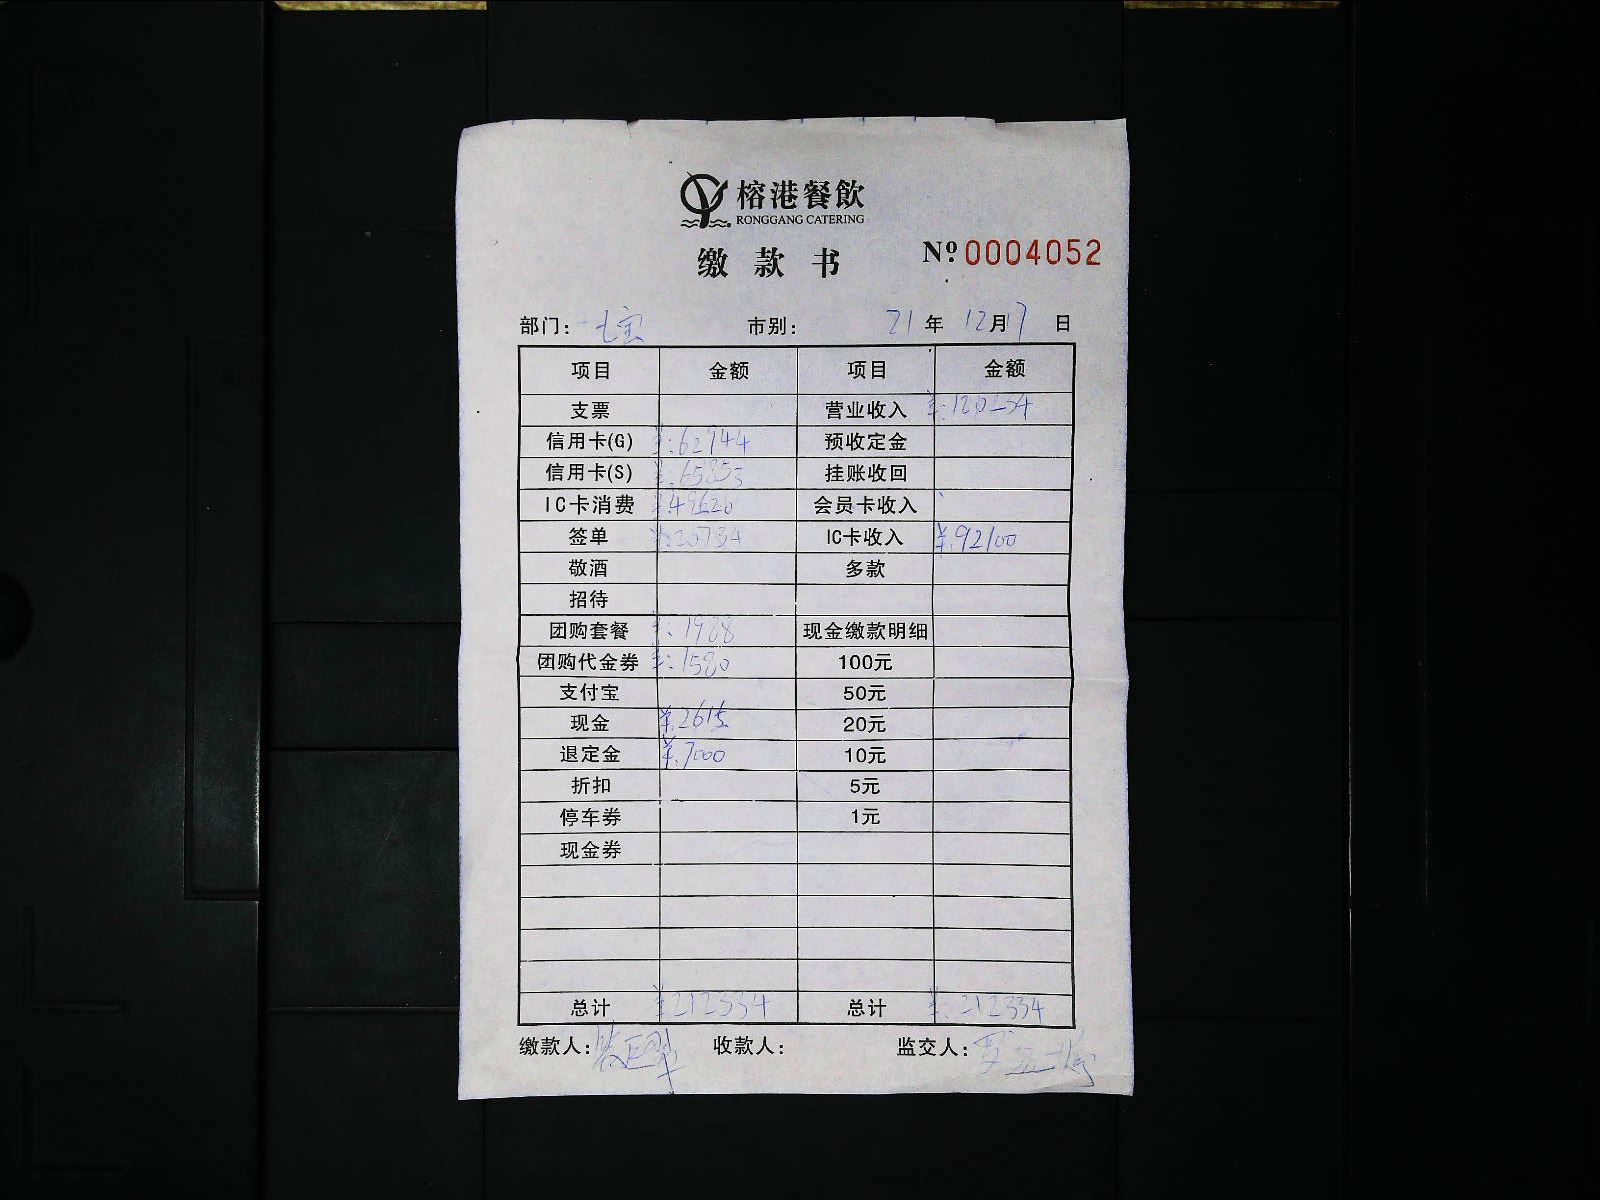 榕港餐飲
RONGGANG CATERING
缴款书 Nº 0004052
部门: 七宝 市别: 21年12月17日
项目 金额 项目 金额
支票 营业收入 ¥:120234
信用卡(G) ¥:62944 预收定金
信用卡(S) ¥:65853 挂账收回
IC卡消费 ¥:49620 会员卡收入
签单 ¥:20734 IC卡收入 ¥:92100
敬酒 多款
招待
团购套餐 ¥:1988 现金缴款明细
团购代金券 ¥:1580 100元
支付宝 50元
现金 ¥:2615 20元
退定金 ¥:7000 10元
折扣 5元
停车券 1元
现金券
总计 ¥212334 总计 ¥:212334
缴款人: 收款人: 监交人: